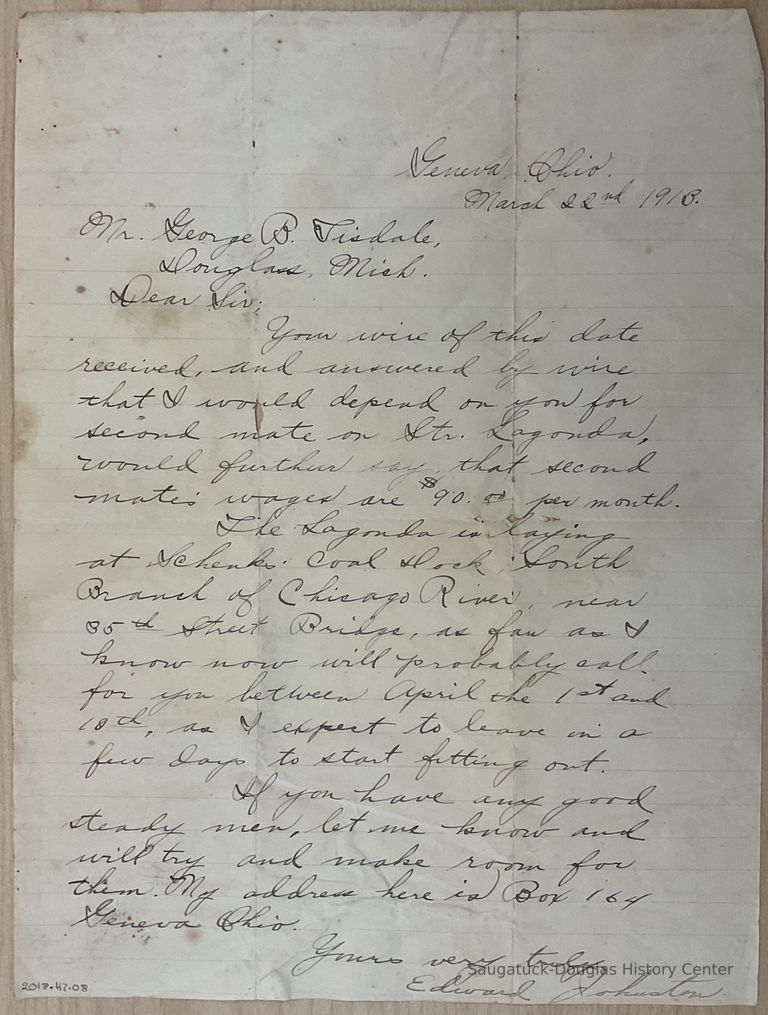 Geneva, Ohio.
March 22nd 1913.
Mr. George B. Tisdale,
Douglass, Mich.
Dear Sir;
Your wire of this date
received, and answered by wire
that I would depend on you for
second mate on Str. Lagonda,
would further say, that second
mate's wages are $90.00 per month.
The Lagonda is laying
at Schenks Coal Dock, South
Branch of Chicago River, near
35th Street Bridge, as far as I
know now will probably call
for you between April the 1st and
10th, as I expect to leave in a
few days to start fitting out.
If you have any good
steady men, let me know and
will try and make room for
them. My address here is Box 164
Geneva Ohio.
Yours very truly
Edward Johnston
Saugatuck-Douglas History Center
2013.47.08